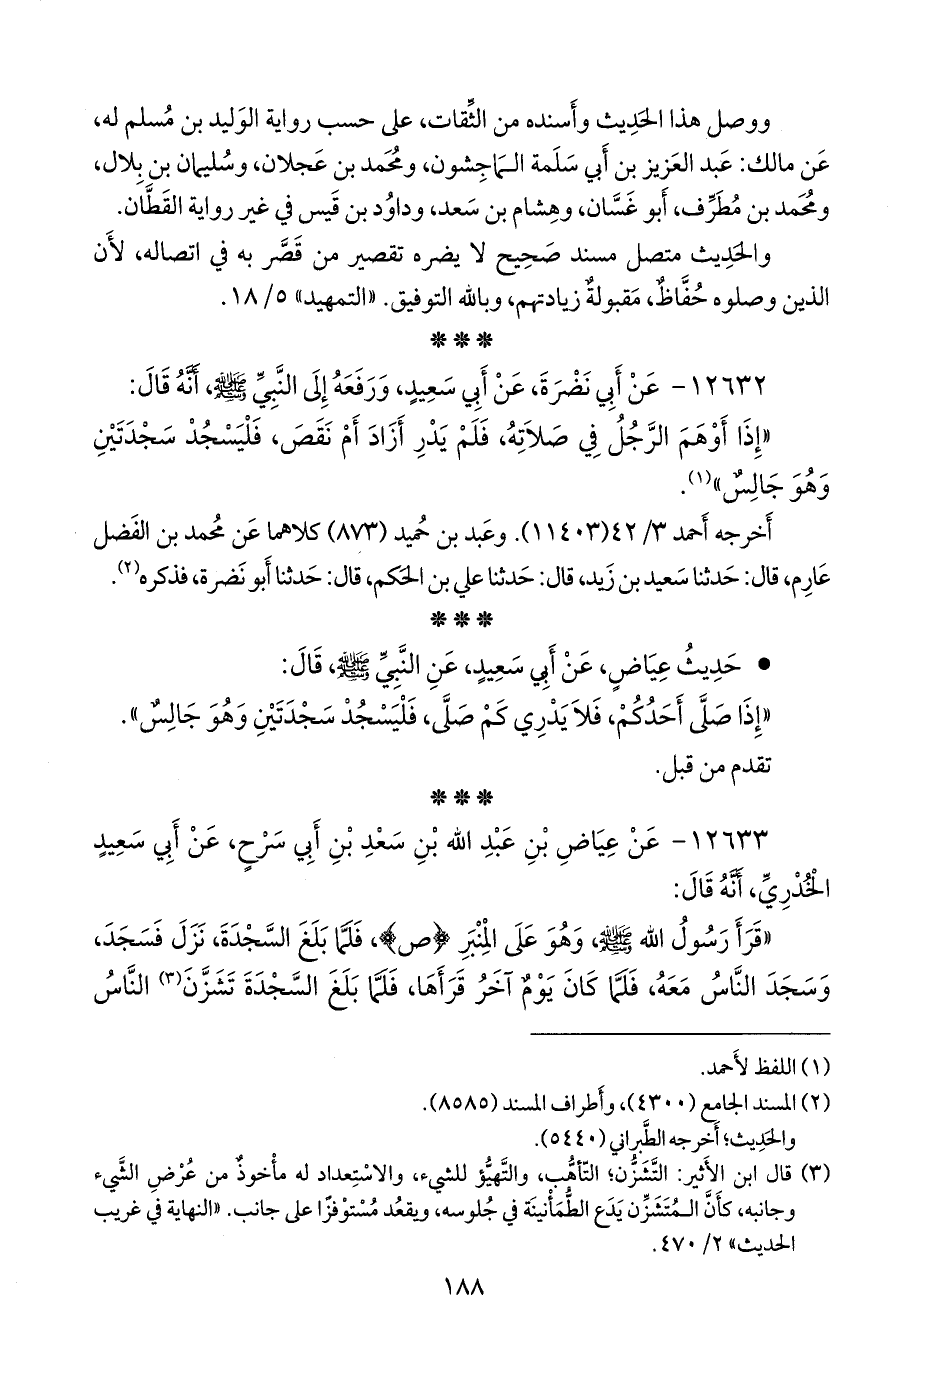 ووصل هذا الحَدِيث وأَسنده من الثِّقات، على حسب رواية الوَليد بن مُسلم له،
عَن مالك: عَبد العَزيز بن أَبي سَلَمة الـماجِشون، ومُحمد بن عَجلان، وسُليمان بن بِلال،
ومُحمد بن مُطَرِّف، أَبو غَسَّان، وهِشام بن سَعد، وداوُد بن قَيس في غير رواية القَطَّان.
والحَدِيث متصل مسند صَحِيح لا يضره تقصير من قَصَّر به في اتصاله، لأَن
الذين وصلوه حُفَّاظٌ، مَقبولةٌ زيادتهم، وبالله التوفيق. «التمهيد» ٥/ ١٨.
***
١٢٦٣٢- عَنْ أَبِي نَضْرَةَ، عَنْ أَبِي سَعِيدٍ، وَرَفَعَهُ إِلَى النَّبِيِّ ﷺ، أَنَّهُ قَالَ:
«إِذَا أَوْهَمَ الرَّجُلُ فِي صَلاَتِهِ، فَلَمْ يَدْرِ أَزَادَ أَمْ نَقَصَ، فَلْيَسْجُدْ سَجْدَتَيْنِ
وَهُوَ جَالِسٌ»(١).
أَخرجه أَحمد ٣/ ٤٢(١١٤٠٣). وعَبد بن حُميد (٨٧٣) كلاهما عَن مُحمد بن الفَضل
عَارِم، قال: حَدثنا سَعيد بن زَيد، قال: حَدثنا علي بن الحكم، قال: حَدثنا أَبو نَضرة، فذكره(٢).
***
• حَدِيثُ عِيَاضٍ، عَنْ أَبِي سَعِيدٍ، عَنِ النَّبِيِّ ﷺ، قَالَ:
«إِذَا صَلَّى أَحَدُكُمْ، فَلاَ يَدْرِي كَمْ صَلَّى، فَلْيَسْجُدْ سَجْدَتَيْنِ وَهُوَ جَالِسٌ».
تقدم من قبل.
***
١٢٦٣٣- عَنْ عِيَاضِ بْنِ عَبْدِ الله بْنِ سَعْدِ بْنِ أَبِي سَرْحٍ، عَنْ أَبِي سَعِيدٍ
الْخُدْرِيِّ، أَنَّهُ قَالَ:
«قَرَأَ رَسُولُ الله ﷺ، وَهُوَ عَلَى الْمِنْبَرِ ﴿ص﴾، فَلَمَّا بَلَغَ السَّجْدَةَ، نَزَلَ فَسَجَدَ،
وَسَجَدَ النَّاسُ مَعَهُ، فَلَمَّا كَانَ يَوْمٌ آخَرُ قَرَأَهَا، فَلَمَّا بَلَغَ السَّجْدَةَ تَشَزَّنَ(٣) النَّاسُ
(١) اللفظ لأَحمد.
(٢) المسند الجامع (٤٣٠٠)، وأَطراف المسند (٨٥٨٥).
والحَدِيث؛ أَخرجه الطَّبراني (٥٤٤٠).
(٣) قال ابن الأَثير: التَّشَزُّن؛ التَّأَهُّب، والتَّهيُّؤ للشيء، والاسْتِعداد له مأْخوذٌ من عُرْضِ الشَّيء
وجانبه، كأَنَّ الـمُتَشَزِّن يَدَع الطُّمَأْنينَة في جُلوسه، ويقعُد مُسْتوْفزًا على جانب. «النهاية في غريب
الحديث» ٢/ ٤٧٠.
١٨٨